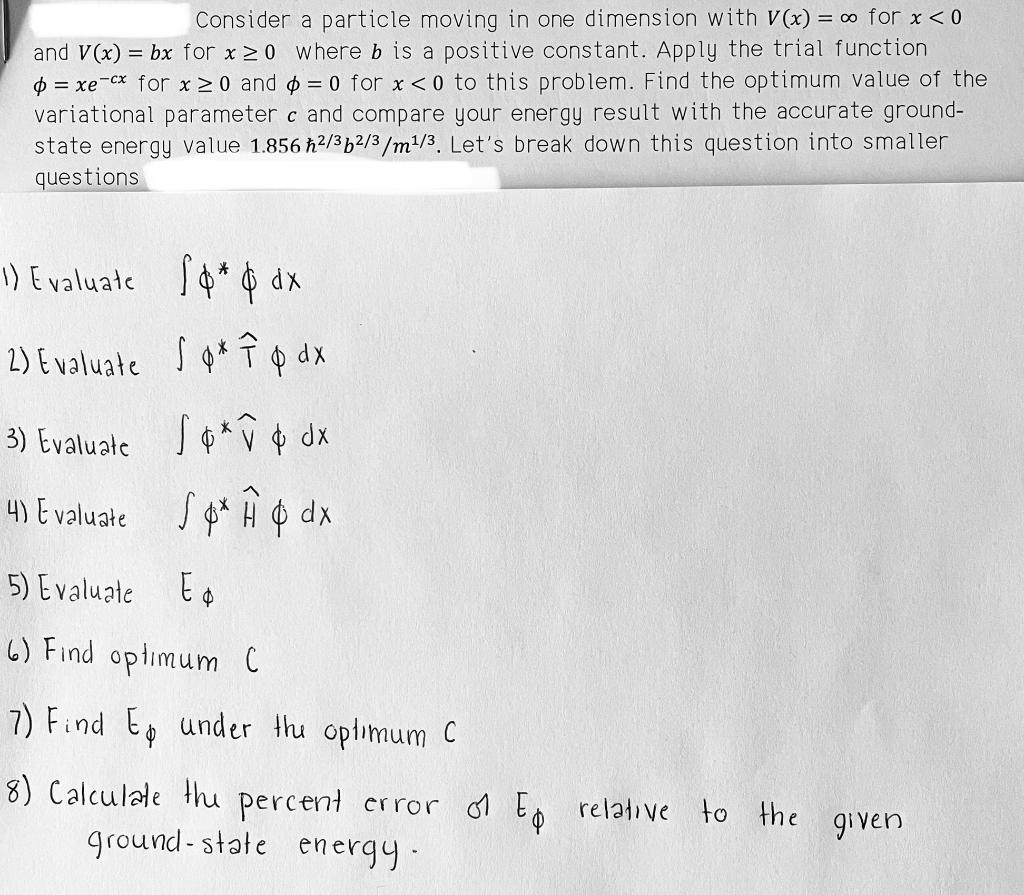 Consider a particle moving in one dimension with V(x) = ∞ for x < 0
and V(x) = bx for x ≥ 0 where b is a positive constant. Apply the trial function
ϕ = xe⁻ᶜˣ for x ≥ 0 and ϕ = 0 for x < 0 to this problem. Find the optimum value of the
variational parameter c and compare your energy result with the accurate ground-
state energy value 1.856 ℏ^2/3 b^2/3/m^1/3. Let's break down this question into smaller
questions
1) Evaluate ∫ϕ* ϕ dx
2) Evaluate ∫ ϕ* T̂ ϕ dx
3) Evaluate ∫ ϕ* V̂ ϕ dx
4) Evaluate ∫ ϕ* Ĥ ϕ dx
5) Evaluate E_ϕ
6) Find optimum C
7) Find E_ϕ under the optimum C
8) Calculate the percent error of E_ϕ relative to the given
ground-state energy.